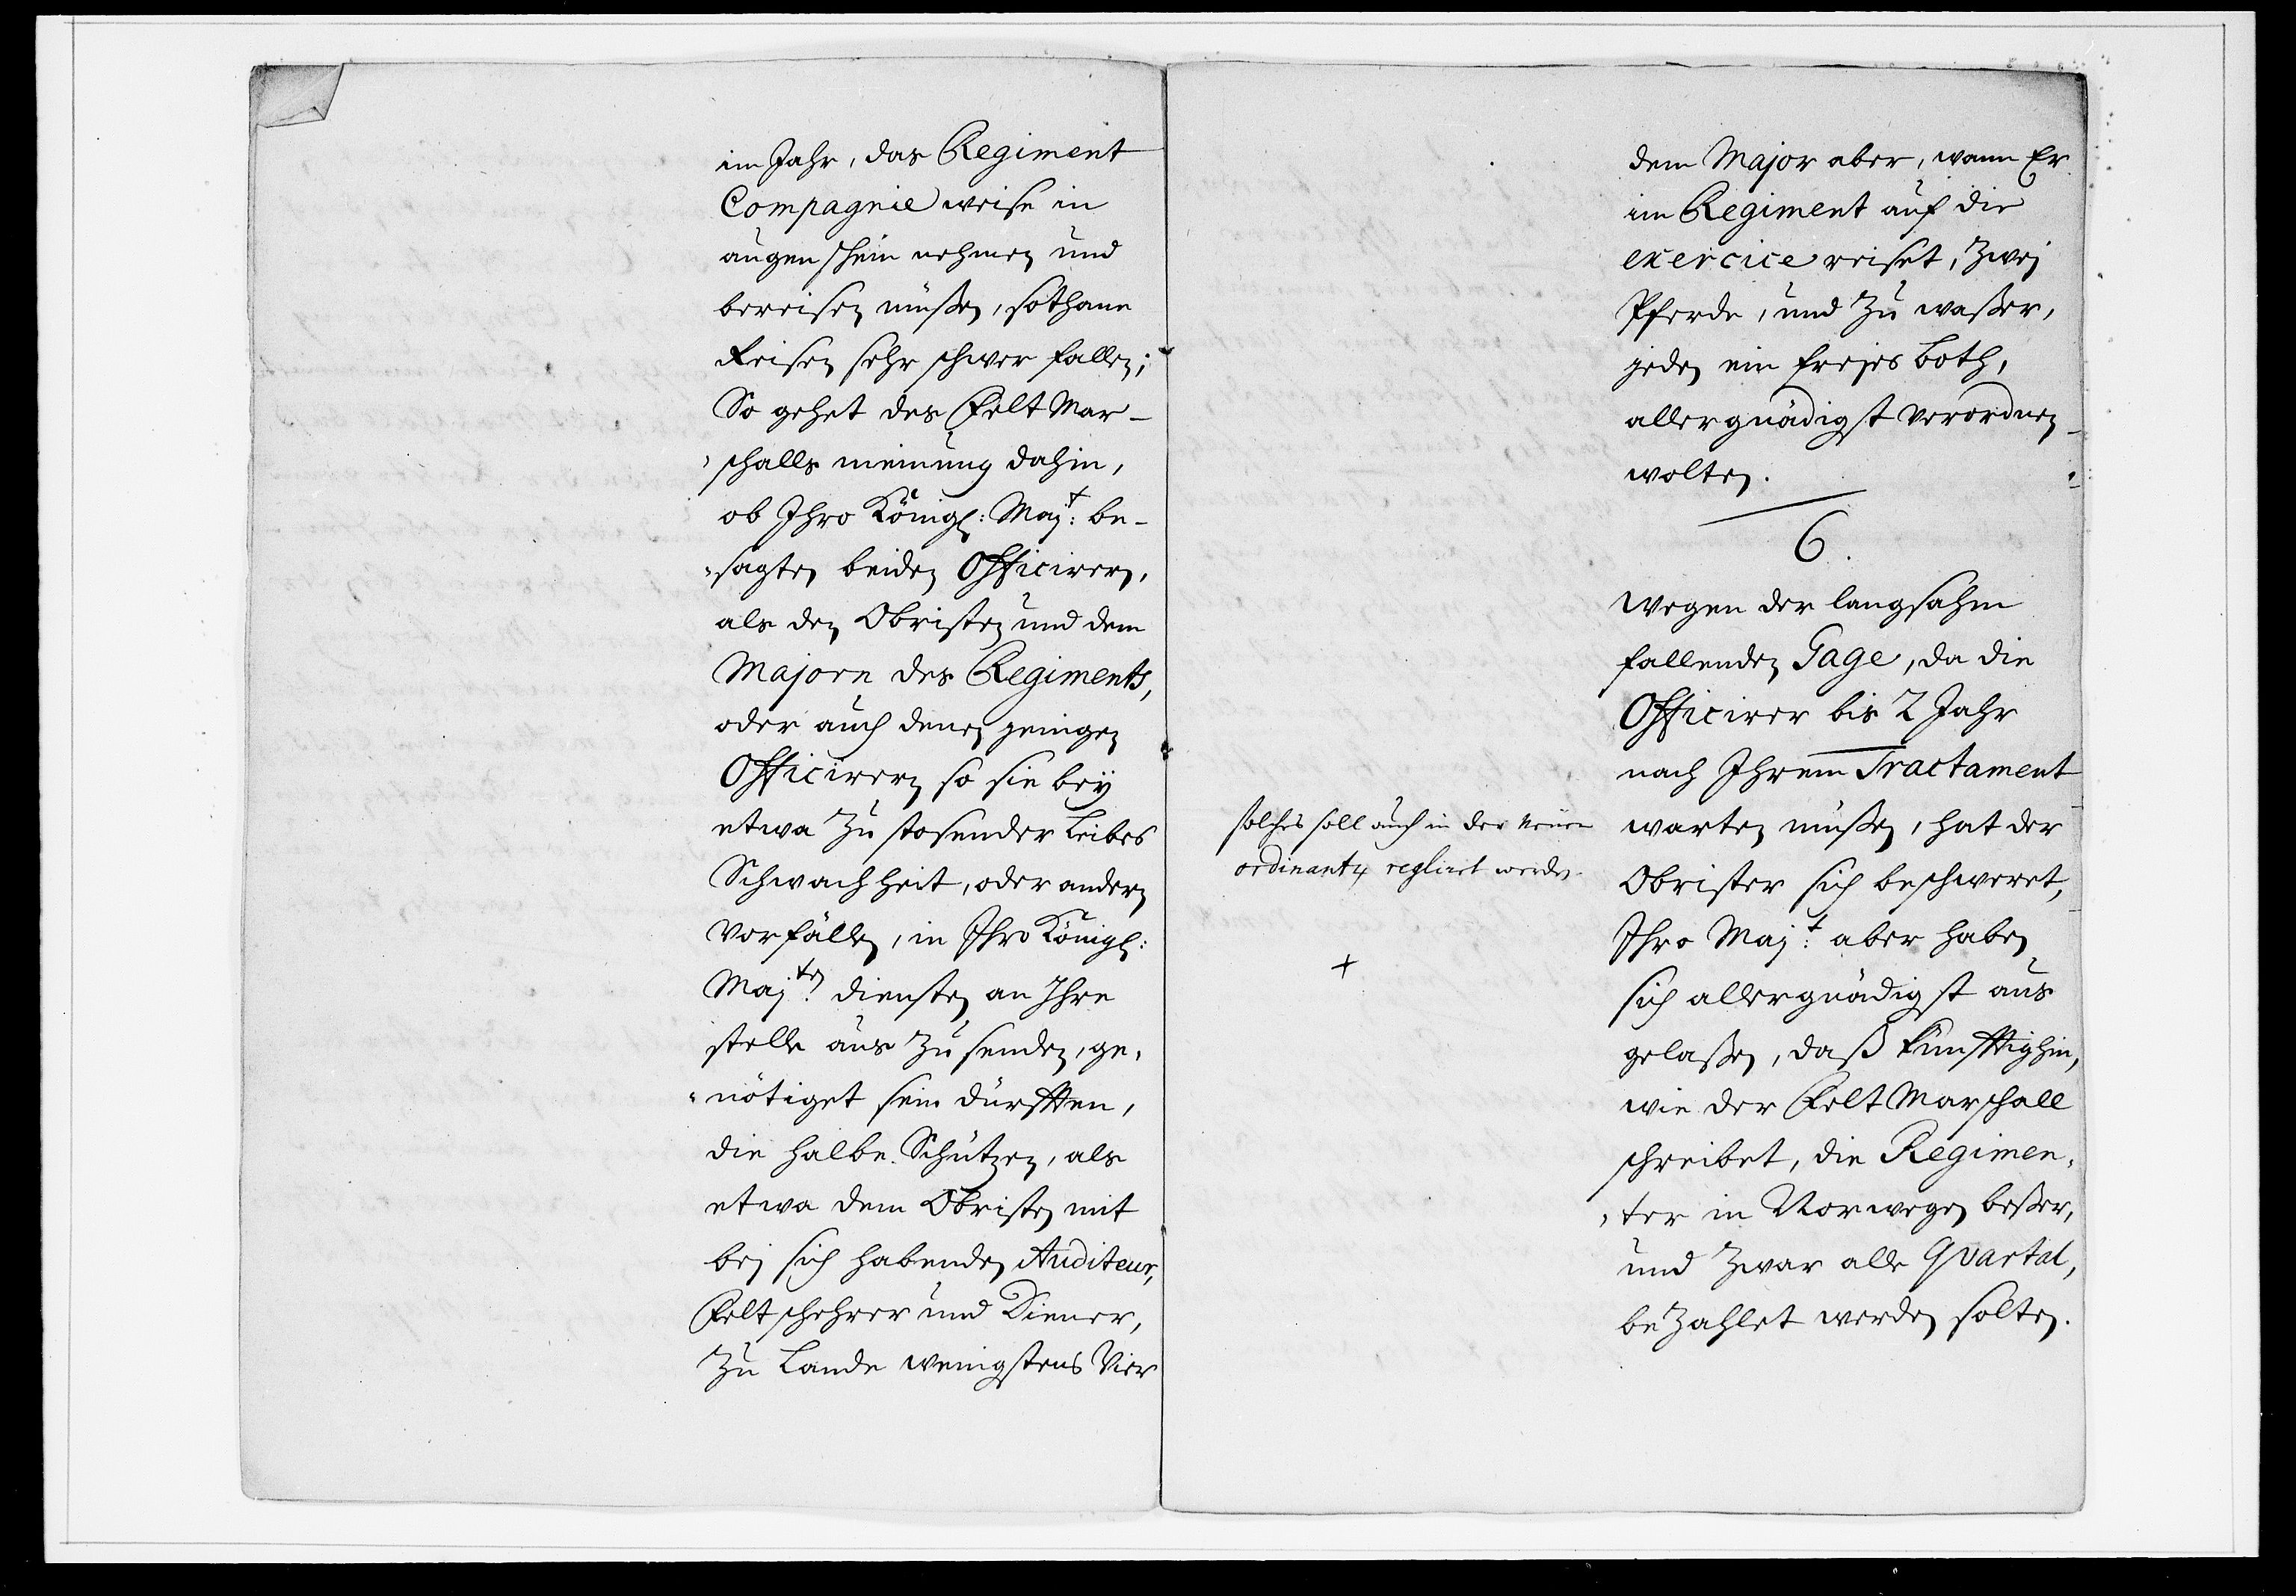 im Jahr, das Regiment
Compagnie weise in
augenschein nehmen und
bereisen müßen, sothane
Reisen sehr schwer fallen;
So gehet des Felt Mar-
schalls meinung dahin,
ob Ihro Königl: Maj:t be-
sagten beiden Officirern,
als den Obristen und dem
Majorn des Regiments,
oder auch denen jenigen
Officirern so sie bey
etwa zu stosender Leibes
Schwachheit, oder andern
vorfällen, in Ihro Königl:
Maj:ten diensten an Ihre
stelle aus zu senden, ge-
nötiget sein dürfften,
die halbe Schützen, als
etwa dem Obristen mit
bej sich habenden Auditeur,
Feltschehrer und Diener,
zu Lande wenigstens Vier
dem Major aber, wann Er
im Regiment auf die
exercice reiset, zwej
Pferde, und zu waßer,
jeden ein frejes Both,
allergnädigst verordnen
wolten.
6.
Wegen der langsahm
fallenden Gage, da die
Officirer bis 2 Jahr
nach Ihrem Tractament
warten müßen, hat der
Obrister sich beschweret,
Ihro Maj:t aber haben
sich allergnädigst aus
gelaßen, daß künfftighin,
wie der Felt Marschall
schreibet, die Regimen-
ter in Norwegen beßer,
und zwar alle Quartal,
bezahlet werden solten.
solches soll auch in der neuen
ordinantz regliret werden.
+